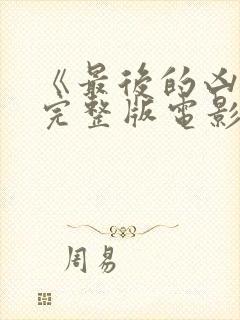 《最後的凶
完整版電影
周易